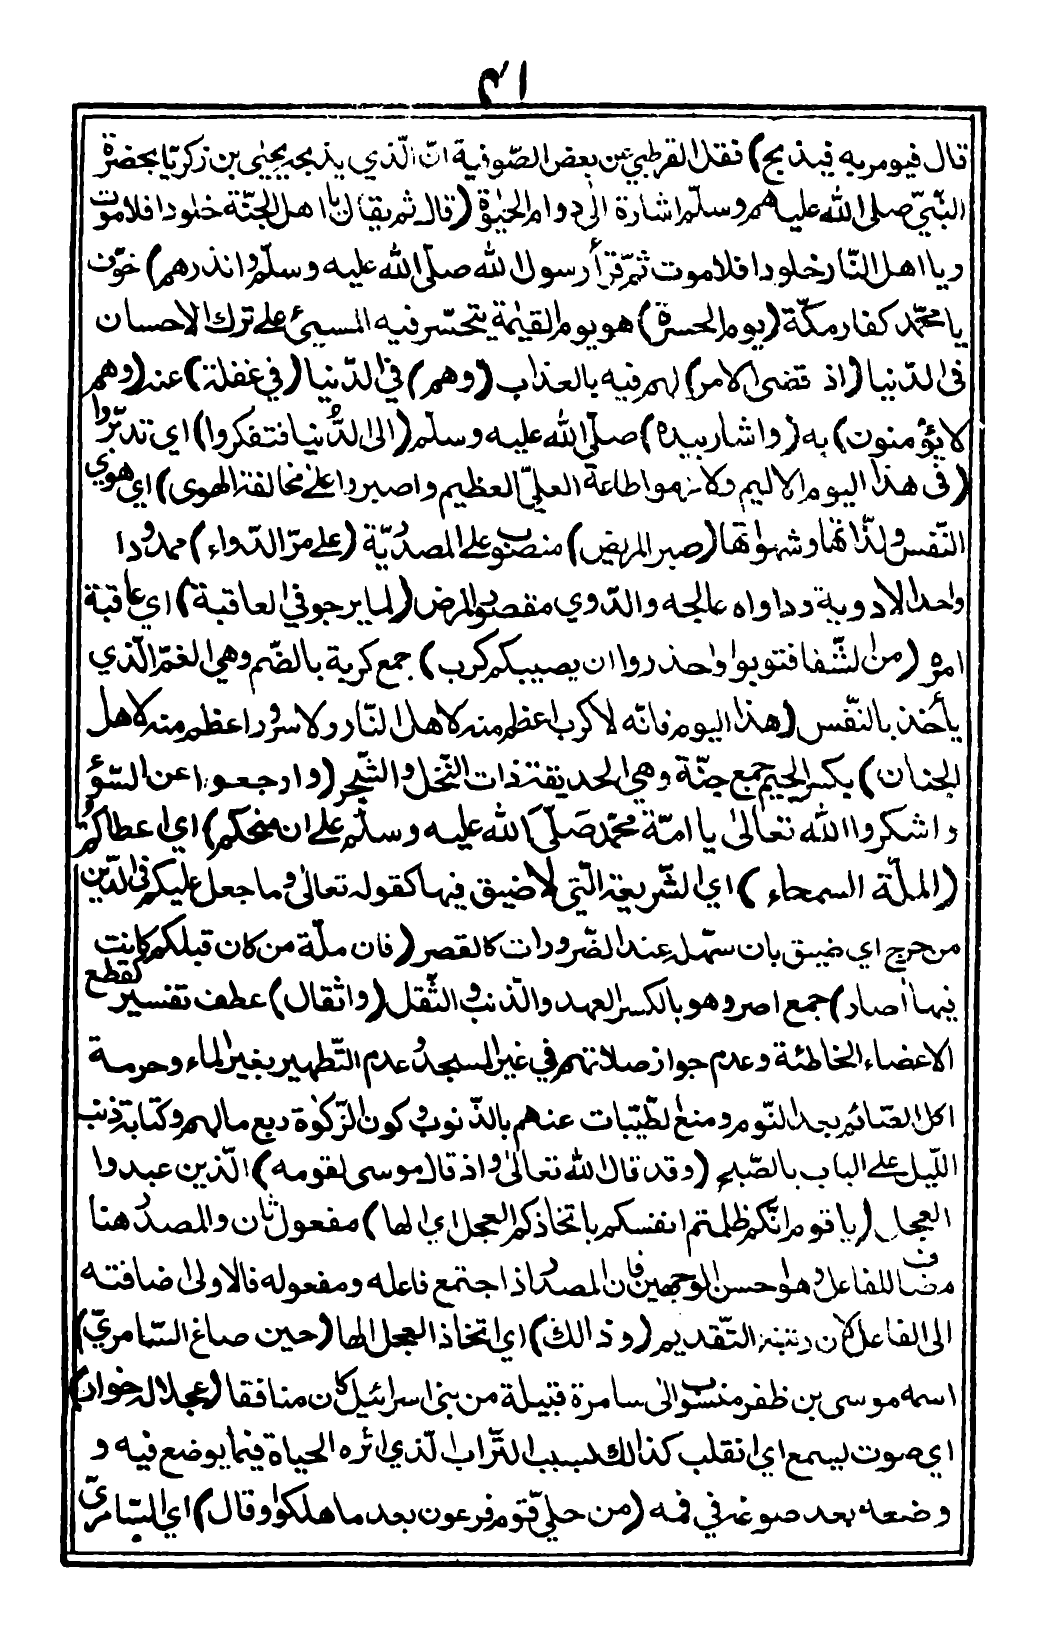 قال فيومر به فيذبح) نقل القرطبي عن بعض الصّوفية انّ الّذي يذبحه يحيٰي بن زكريّا بحضرة
النّبيّ صلى الله عليهم وسلّم اشارة الى دوام الحيٰوة (قال ثم يقال يا اهل الجنّة خلودا فلا موت
ويا اهل النّار خلودا فلا موت ثمّ قرأ رسول الله صلّى الله عليه وسلّم وانذرهم) خوّف
يا محمّد كفار مكّة (يوم الحسرة) هو يوم القيٰمة يتحسّر فيه المسيئ على ترك الاحسان
فى الدّنيا (اذ قضى الامر) لهم فيه بالعذاب (وهم) في الدّنيا (في غفلة) عنه (وهم
لا يؤمنون) به (واشار بيده) صلّى الله عليه وسلم (الى الدّنيا فتفكروا) اي تدبّروا
(فى هذا اليوم الاليم ولازموا طاعة العليّ العظيم واصبروا على مخالفة الهوى) اي هوي
النّفس ولذّاتها وشهواتها (صبر المريض) منصوب على المصدريّة (على مرّ الدّواء) ممدودا
واحد الادوية وداواه عالجه والدّوي مقصور المرض (لما يرجو في العاقبة) اي عاقبة
امره (من الشّفا فتوبوا واحذروا ان يصيبكم كرب) جمع كربة بالضّم وهي الغمّ الّذي
يأخذ بالنّفس (هذا اليوم فانّه لا كرب اعظم منه لاهل النّار ولا سرور اعظم منه لاهل
الجنان) بكسر الجيم جمع جنّة وهي الحديقة ذات النّخل والشّجر (وارجعوا عن السّوٓء
واشكروا الله تعالىٰ يا امّة محمّد صَلّى الله عليه وسلّم على ان منحكم) اي اعطاكم
(الملّة السمحاء) اي الشّريعة الّتي لا ضيق فيها كقوله تعالىٰ وما جعل عليكم فى الدّين
من حرج اي ضيق بان سهّل عند الضّرورات كالقصر (فان ملّة من كان قبلكم كانت
فيها آصار) جمع اصر وهو بالكسر العهد والذّنب والثّقل (واثقال) عطف تفسير كقطع
الاعضاء الخاطئة وعدم جواز صلاتهم في غير المسجد وعدم التّطهير بغير الماء وحرمة
اكل الصّائم بعد النّوم ومنع الطّيّبات عنهم بالذّنوب وكون الزّكوٰة ربع مالهم وكتابة ذنب
اللّيل على الباب بالصّبح (وقد قال الله تعالىٰ واذ قال موسى لقومه) الّذين عبدوا
العجل (يا قوم انّكم ظلمتم انفسكم باتخاذكم العجل اي الها) مفعول ثان والمصدر هنا
مضاف للفاعل وهو احسن الوجهين فان المصدر اذا اجتمع فاعله ومفعوله فالاولىٰ اضافته
الى الفاعل لان رتبته التّقديم (وذالك) اي اتخاذ العجل الها (حين صاغ السّامريّ)
اسمه موسى بن ظفر منسوب الىٰ سامرة قبيلة من بنى اسرائيل كان منافقا (عجلا له خوار)
اي صوت ليسمع اي انقلب كذالك بسبب التّراب الّذي اثره الحياة فيما يوضع فيه و
وضعه بعد صوغه في فمه (من حلي قوم فرعون بعد ما هلكوا وقال) اي السّامريّ